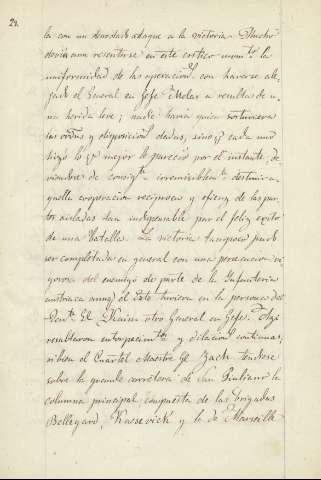 24.
la con un denodado ataque a la victoria. Mucho
debió aun resentirse en este critico momto. la
uniformidad de las operaciones con haverse ale-
jado el General en Jefe Melas a resultas de u-
na herida leve; nadie havia quien sostuviera
las ordns y disposicion dadas, sino q. cada uno
hizo lo q. mejor le pareció por el instante, de-
viendose de consigte. irremisiblemte. destruir a-
quella cooperacion reciproca y eficaz de las par-
tes aisladas tan indispensable par el feliz exito
de una batalla. La victoria tampoco pudo
ser completada en general con una persecucion vi-
gorosa del enemigo de parte de la Infanteria
austriaca aunq. el Este tuviera en la persona del
Tente. Gl. Kaim otro General en Gefe.
semblaron entorpecimtos. y dilacion continuas,
si bien el Cuartel Maestre Gl. Zach, tendose
sobre la grande carretera de San Giuliano la
columna principal compuesta de las brigadas
Bellegard, Knesevich y la de Marseille